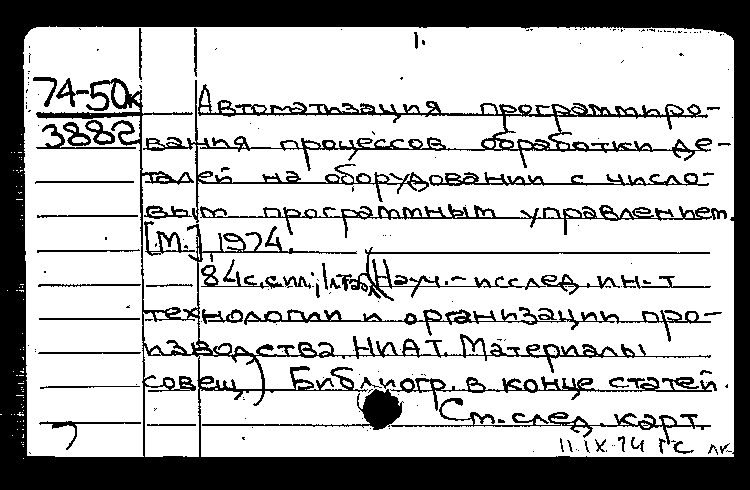 1.
74-50к
3882
Автоматизация программиро-
вания процессов обработки де-
талей на оборудовании с число-
вым программным управлением.
[М.], 1974.
84 с. с ил.; 1 л. табл. (Науч.-исслед. ин-т
технологии и организации про-
изводства НИАТ. Материалы
совещ.). Библиогр. в конце статей.
См. след. карт.
11.IX.74 ГС лк